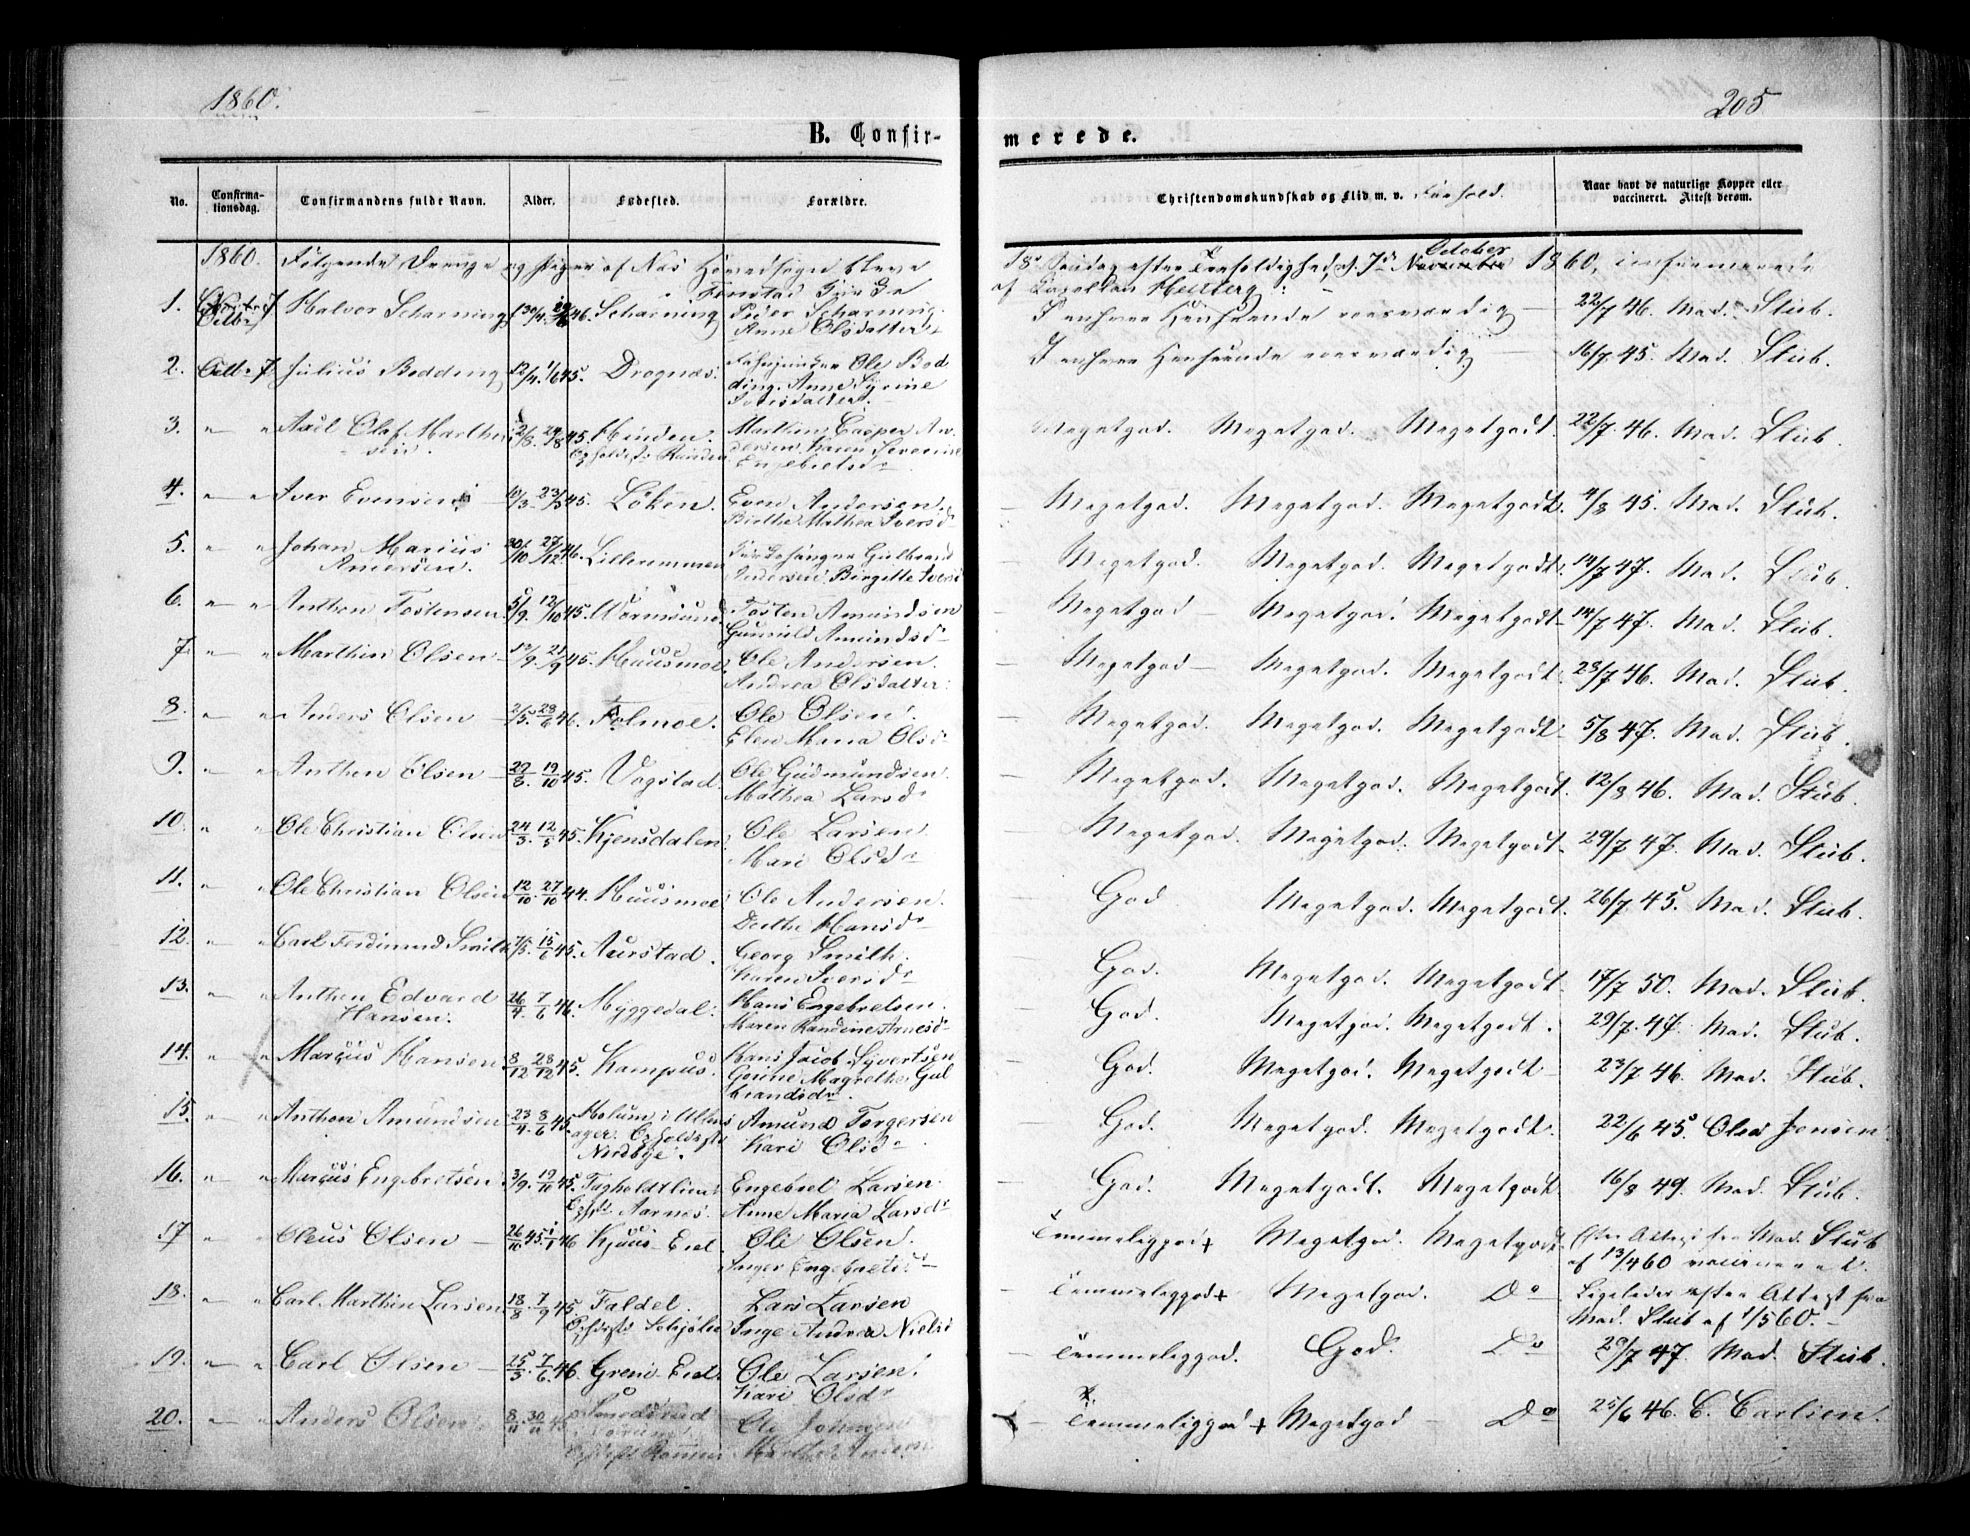 1860.
205
B. Confir-
merede.
No.
Confirma-
tionsdag.
Confirmandens fulde Navn.
Alder.
Fødested.
Forældre.
Christendomskundskab og Flid m. v. Forhold.
Naar havt de naturlige Kopper eller
vaccineret. Attest derom.
1860. Følgende Drenge og Piger af Næs Hovedsogn bleve 18de Søndag efter Trefoldighed, d. 7de October 1860, confirmerede
af Capellan Hesberg:
1. Octbr 7 Halvor Scharning 30/4 46. Scharning Peder Scharning. Anne Olsdatter 22/7 46. Mad. Stub.
2. Octb 7 Julius Bødding 12/4 1/6 45. Drognæs. Ole Bød
ding. Anne
16/7 45. Mad. Stub.
3. " " Axel Olaf Marthin
sen. 2/8 24/8 45. Henden. Marthin Casper An
dersen. Karen Severine
Engebretsdr Megetgod. Megetgod. Megetgodt. 22/7 46. Mad. Stub.
4. " " Iver Evensen 10/3 23/3 45. Löken. Even Andersen.
Birthe Mathea Iversdr Megetgod. Megetgod. Megetgodt. 4/8 45. Mad. Stub.
5. " " Johan Marius
Andersen. 30/10 27/12 46. Lillerommen Gulbrand
Andersen. Birgitte Iversd Megetgod. Megetgod. Megetgodt. 14/7 47. Mad. Stub.
6. " " Anthon Tostensen 5/9 12/10 45. Wormsund. Tosten Amundsen
Gunild Amundsdr Megetgod Megetgod. Megetgodt 14/7 47. Mad. Stub.
7. " " Marthin Olsen 12/9 21/9 45. Huusmoe Ole Andersen.
Andrea Olsdatter. Megetgod Megetgod. Megetgodt. 23/7 46. Mad. Stub.
8. " " Anders Olsen 2/5 28/6 46. Folmoe. Ole Olsen.
Elen Maria Olsd Megetgod. Megetgod. Megetgodt 5/8 47. Mad. Stub.
9. " " Anthon Olsen 29/8 19/10 45. Vogstad. Ole Gudmundsen.
Mathea Larsdr Megetgod. Megetgod. Megetgodt. 12/8 46. Mad. Stub.
10. " " Ole Christian Olsen 24/3 12/5 45. Kjensdalen Ole Larsen.
Mari Olsdr Megetgod. Megetgod. Megetgodt. 29/7 47. Mad. Stub.
11. " " Ole Christian Olsen 12/10 27/10 44. Huusmoe Ole Andersen.
Berthe Hansdr God Megetgod. Megetgodt. 26/7 45. Mad. Stub.
12. " " Carl Ferdinand Smith 7/5 15/6 45. Aurstad. Georg Smith.
Karen Iversdr God. Megetgod. Megetgodt. 17/7 50. Mad. Stub.
13. " " Anthon Edvard
Hansen. 26/4 7/6 46. Myggedal. Hans Engebretsen.
Maren Randine Arnesdr God. Megetgod. Megetgodt. 29/7 47. Mad. Stub.
14. " " Marcus Hansen 8/12 28/12 45. Kampus. Hans Jacob Syvertsen
Gorine Magrethe Gul
brandsdr. God. Megetgod. Megetgodt 23/7 46. Mad. Stub.
15. " " Anthon Amundsen 23/4 8/6 45. Holum i Ullens
ager. Opholdsst.
Nordbye. Amund Torgersen
Kari Olsdr God. Megetgod. Megetgodt. 22/6 45. Olea Jensen.
16. " " Marcus Engebretsen. 3/9 19/11 45. Aarnes. Engebret Larsen.
Anne Maria Larsdr God. Megetgodt. Megetgodt. 16/8 49. Mad. Stub.
17 " " Oleus Olsen 26/10 45. 1/1 46 Kjuus-Eiet. Ole Olsen.
Inger Engebretsd Temmeliggod + Megetgod. Megetgodt Efter Attest fra Mad. Stub
af 13/4 60 vaccineret.
18. " " Carl Marthin Larsen 18/8 7/9 45. Faldet. Lars Larsen
Inge Andrea Nielsd Temmeliggod + Megetgod. Do Ligeledes efter Attest fra
Mad. Stub af 1/5 60.
19. " " Carl Olsen 25/3 7/6 46 Greni Eiet. Ole Larsen.
Kari Olsdr Temmeliggod. God. Do 29/7 47. Mad. Stub.
20. " " Anders Olsen 8/11 30/11 45 Ole Johnsen Temmeliggod + Megetgod Do 25/6 46. C. Carlsen.